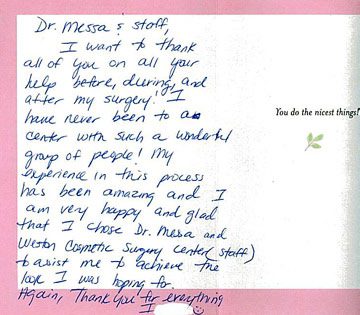 Dr. Messa & staff,
I want to thank
all of you on all your
help before, during, and
after my surgery! I
have never been to a
center with such a wonderful
group of people! My
experience in this process
has been amazing and I
am very happy and glad
that I chose Dr. Messa and
Weston Cosmetic Surgery Center (staff)
to assist me to achieve the
look I was hoping for.
Again, Thank you for everything
You do the nicest things!